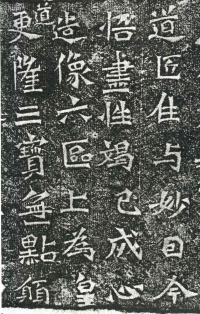 道匠住与妙日今
悟盡性竭己成心
造像六區上為皇
道更隆三寶無點願